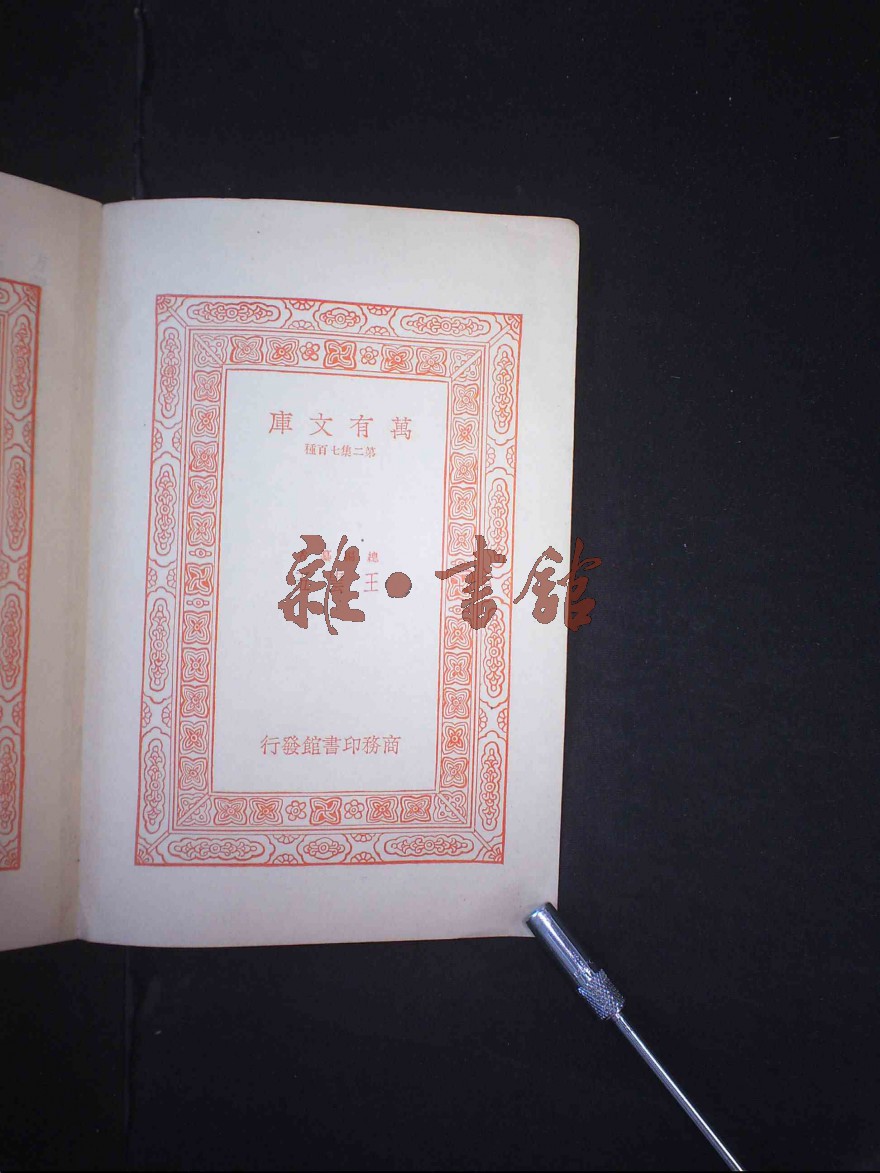 萬有文庫
第二集七百種
總 纂
王
商務印書館發行
雜·書館